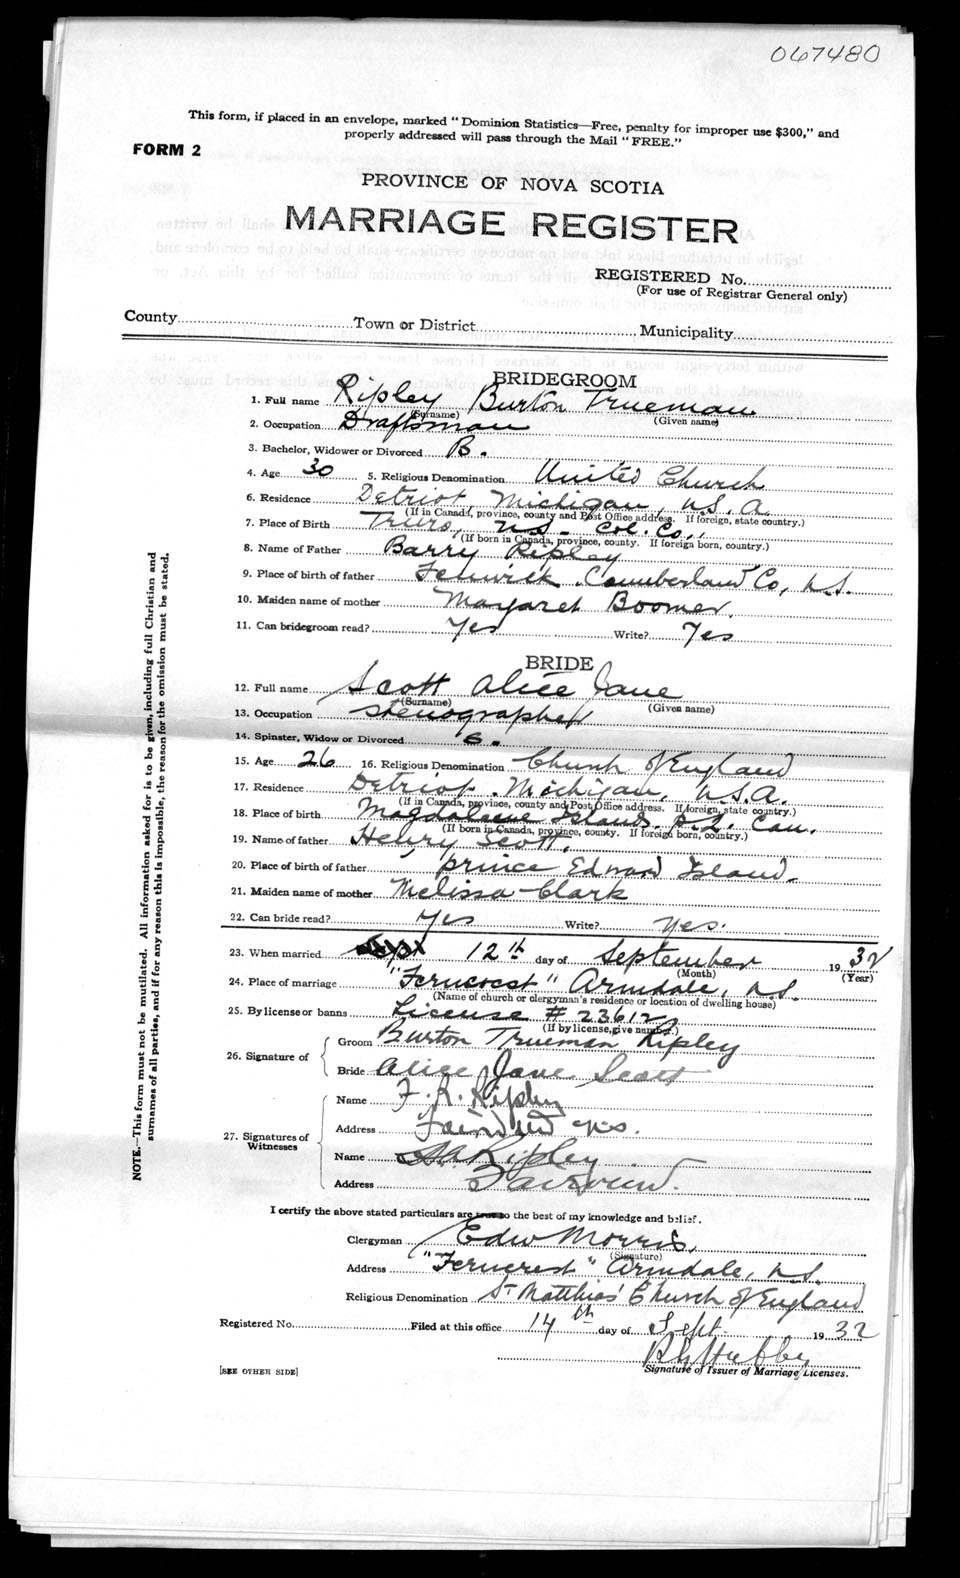 067480
This form, if placed in an envelope, marked "Dominion Statistics—Free, penalty for improper use $300," and
properly addressed will pass through the Mail "FREE."
FORM 2
PROVINCE OF NOVA SCOTIA
MARRIAGE REGISTER
REGISTERED No.
(For use of Registrar General only)
County Town or District Municipality
BRIDEGROOM
1. Full name Ripley Burton Trueman
(Surname) (Given name)
2. Occupation Draftsman
3. Bachelor, Widower or Divorced B.
4. Age 30 5. Religious Denomination United Church
6. Residence Detriot, Michigan, U.S.A.
(If in Canada, province, county and Post Office address. If foreign, state country.)
7. Place of Birth Truro, N.S. Col. Co.,
(If born in Canada, province, county. If foreign born, country.)
8. Name of Father Barry Ripley
9. Place of birth of father Fenwick Cumberland Co, N.S.
10. Maiden name of mother Margaret Boomer.
11. Can bridegroom read? Yes Write? Yes
BRIDE
12. Full name Scott Alice Jane
(Surname) (Given name)
13. Occupation Stenographer
14. Spinster, Widow or Divorced S.
15. Age 26 16. Religious Denomination Church of England
17. Residence Detriot. Michigan, U.S.A.
(If in Canada, province, county and Post Office address. If foreign, state country.)
18. Place of birth Magdalene Islands. P.Q. Can.
(If born in Canada, province, county. If foreign born, country.)
19. Name of father Henry Scott.
20. Place of birth of father Prince Edward Island.
21. Maiden name of mother Melissa Clark
22. Can bride read? Yes Write? Yes.
23. When married 12th day of September 1932
(Month) (Year)
24. Place of marriage "Ferncrest" Armdale, N.S.
(Name of church or clergyman's residence or location of dwelling house)
25. By license or banns License # 23612
(If by license, give number.)
26. Signature of
Groom Burton Trueman Ripley
Bride Alice Jane Scott
27. Signatures of
Witnesses
Name F. R. Ripley
Address Fairview N.S.
Name Ripley
Address Fairview.
I certify the above stated particulars are true to the best of my knowledge and belief.
Clergyman Edw Morris,
(Signature)
Address "Ferncrest" Armdale, N.S.
Religious Denomination St Matthias' Church of England
Registered No. Filed at this office 14th day of Sept 1932
Signature of Issuer of Marriage Licenses.
[SEE OTHER SIDE]
NOTE.—This form must not be mutilated. All information asked for is to be given, including full Christian and
surnames of all parties, and if for any reason this is impossible, the reason for the omission must be stated.